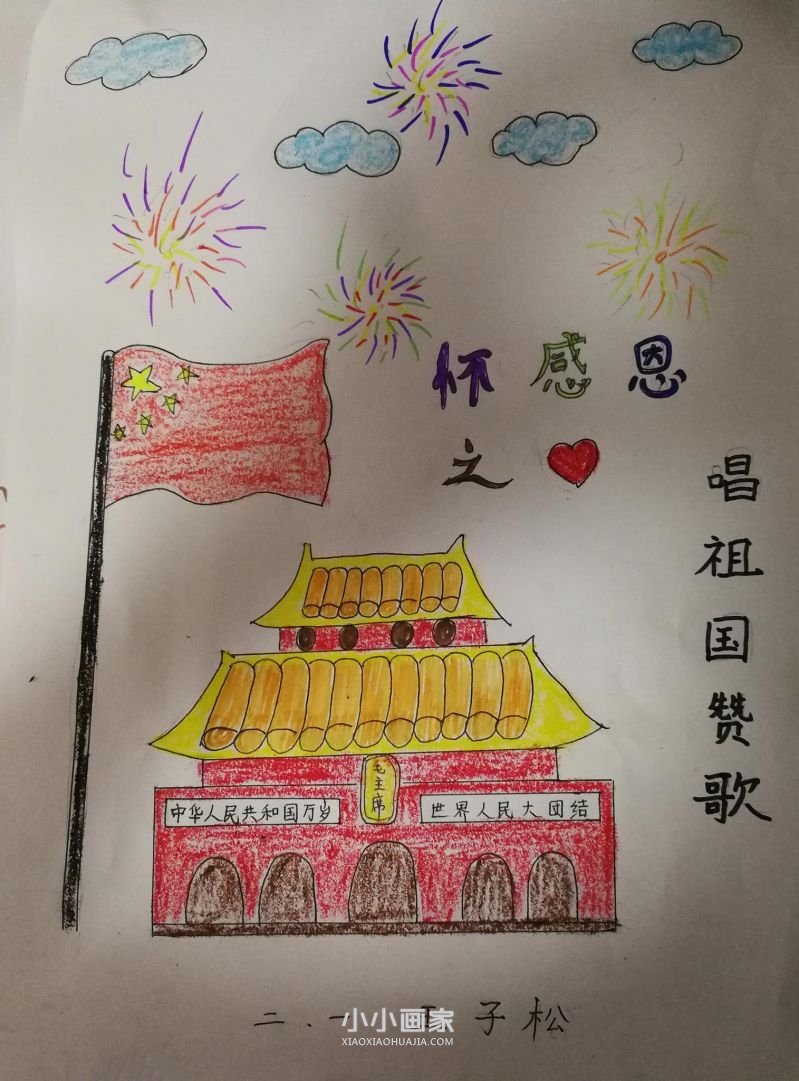 怀感恩
之
唱祖国赞歌
毛主席
中华人民共和国万岁
世界人民大团结
二.一 子松
小小画家
XIAOXIAOHUAJIA.COM